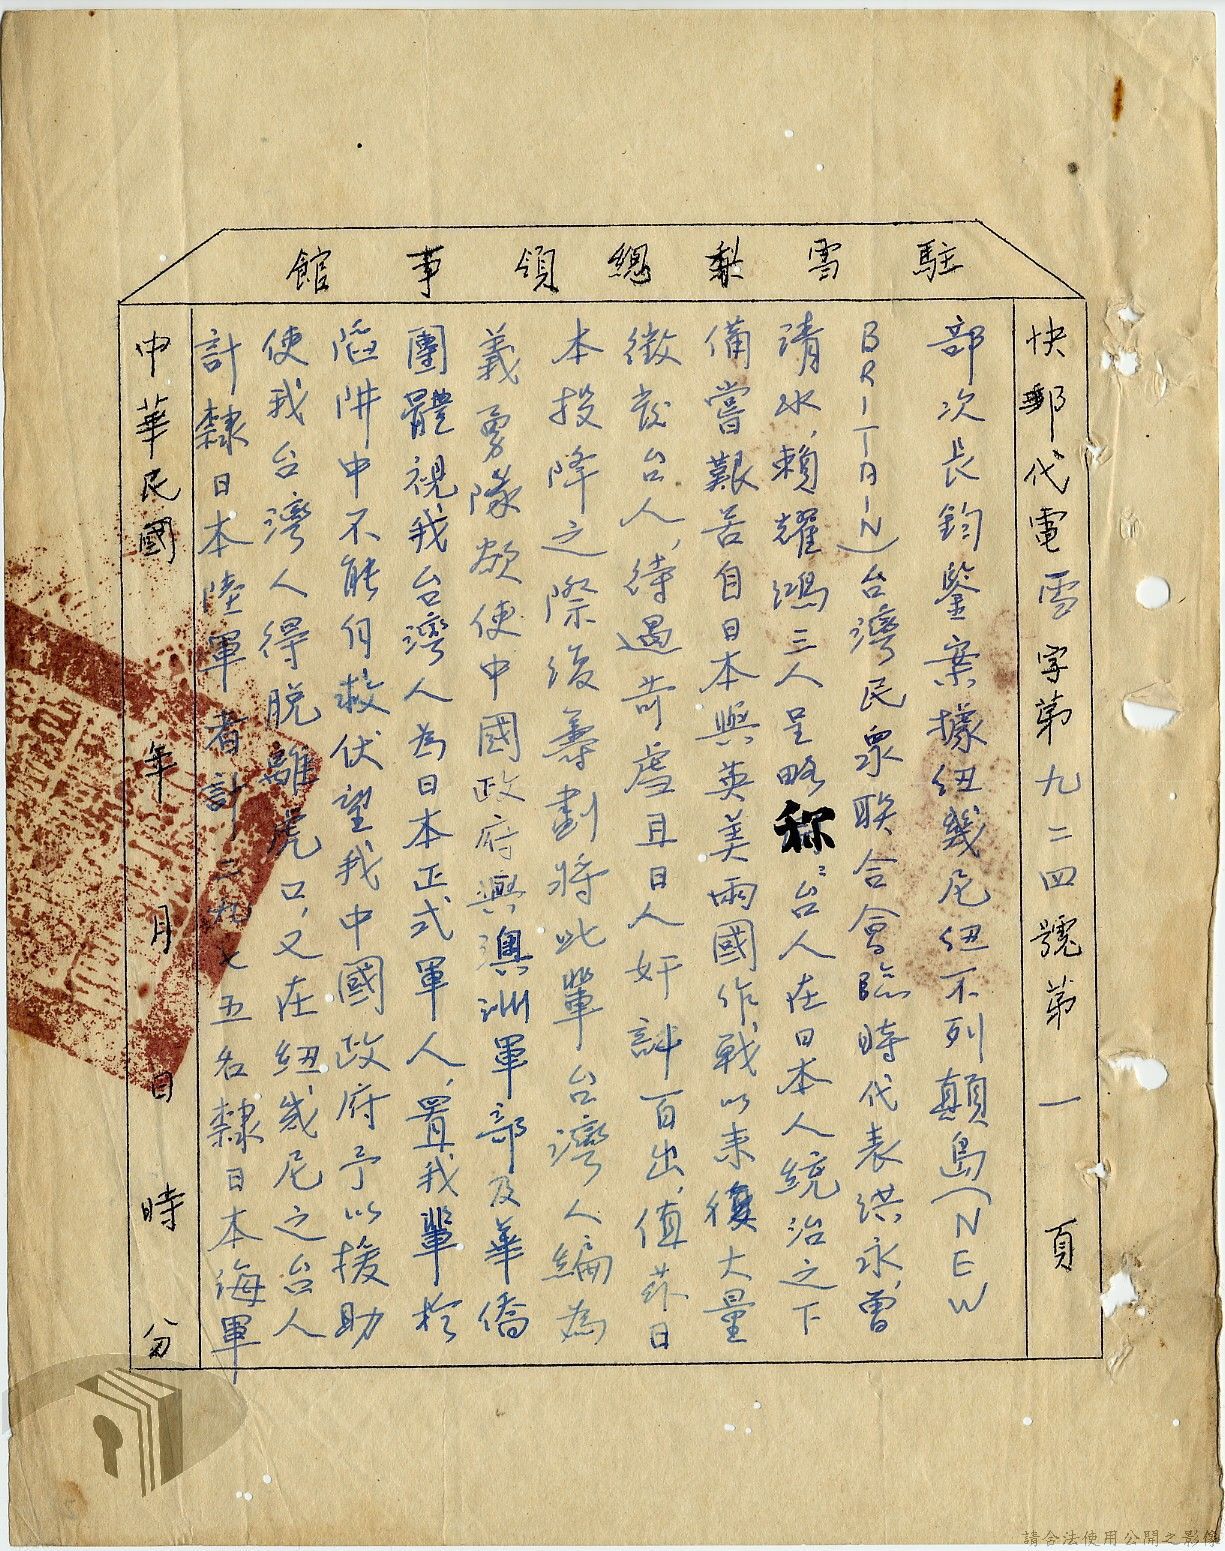 駐雪梨總領事館
快郵代電雪字第九二四號第一頁
部次長鈞鑒案據紐幾尼紐不列顛島(NEW
BRITAIN)台灣民眾联合會臨時代表洪永,曾
清水,賴耀鴻三人呈略称:台人在日本人統治之下
備嘗艱苦自日本與英美兩國作戰以來復大量
徵台人,待遇苛虐且日人奸計百出,值茲日
本投降之際復籌劃將此輩台灣人編為
義勇隊欲使中國政府與澳洲軍部及華僑
團體視我台灣人為日本正式軍人,置我輩於
陷阱中不能自救伏望我中國政府予以援助
使我台灣人得脫離虎口,又在紐幾尼之台人
計隸日本陸軍者計二九七五名隸日本海軍
中華民國 年 月 日 時 分
請合法使用公開之影像